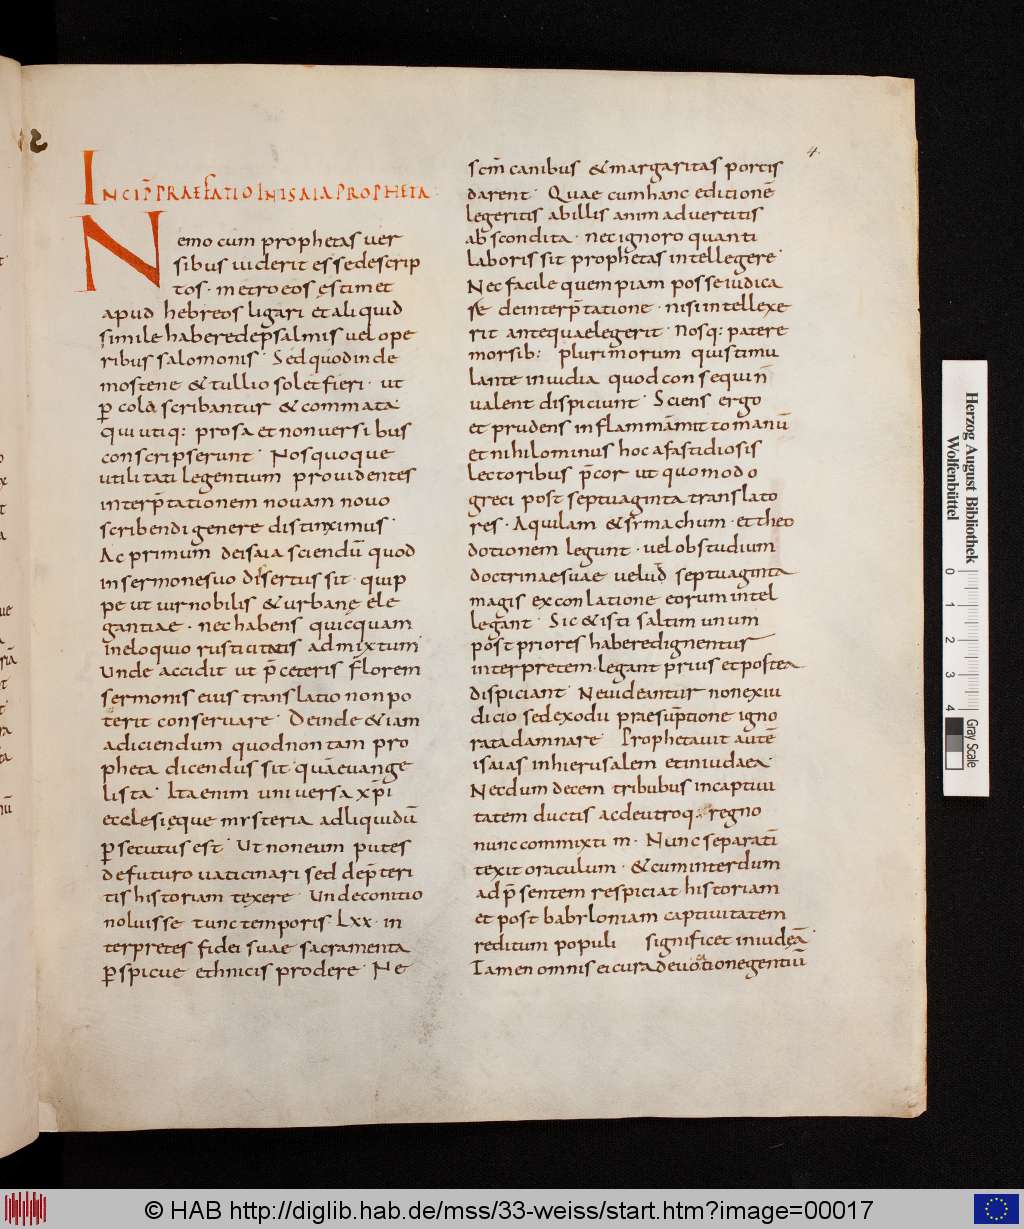 4.
INCIP̄ PRAEFATIO IN ISAIA PROPHETA
Nemo cum prophetas uer
sibus uiderit esse descrip
tos · metro eos ęstimet
apud hebreos ligari et aliquid
simile habere de psalmis uel ope
ribus salomonis · Sed quod in de
mostene & tullio solet fieri · ut
ꝑ cola scribantur & commata ·
qui utiq: prosa et non uersibus
conscripserunt · Nos quoque
utilitati legentium prouidentes
interp̄tationem nouam nouo
scribendi genere distinximus ·
Ac primum de isaia sciendū quod
in sermone suo disertus sit · quip
pe ut uir nobilis & urbanę ele
gantiae · nec habens quicquam
in eloquio rusticitatis admixtum
Unde accidit ut p̄ ceteris florem
sermonis eius translatio non po
terit conseruare · Deinde & iam
adiciendum quod non tam pro
pheta dicendus sit · quā euange
lista · Ita enim uniuersa xp̄i
ecclesięque mysteria ad liquidū
ꝑsecutus est · Ut non eum putes
de futuro uaticinari sed de p̄teri
tis historiam texere · Unde conitio
noluisse tunc temporis Lxx · in
terpretes fidei suae sacramenta
ꝑspicue ethnicis prodere · Ne
scm̄ canibus & margaritas porcis
darent · Quae cum hanc editionē
legeritis ab illis animaduertitis
abscondita · nec ignoro quanti
laboris sit prophetas intellegere ·
Nec facile quempiam posse iudica
re de interp̄tatione · nisi intellexe
rit ante quae legerit · Nosq: patere
morsib: plurimorum qui stimu
lante inuidia quod consequi n̄
ualent dispiciunt · Sciens ergo
et prudens in flammā mitto manū
et nihilominus hoc a fastidiosis
lectoribus p̄cor ut quomodo
greci post septuaginta translato
res · Aquilam & symachum · et theo
dotionem legunt · uel ob studium
doctrinae suae uel ud septuaginta
magis ex conlatione eorum intel
legant · Sic & isti saltim unum
post priores habere dignentur
interpretem legant prius et postea
dispiciant · Ne uideantur non ex iu
dicio sed ex odii praesūptione igno
rata damnare · Prophetauit autē
isaias in hierusalem et in iudaea ·
Necdum decem tribubus in captiui
tatem ductis ac de utroq: regno
nunc commixtim · Nunc separatī
texit oraculum · & cum interdum
ad p̄sentem respiciat historiam
et post babyloniam captiuitatem
reditum populi significet in iudeā ·
Tamen omnis ei cura de uocatione gentiū
Herzog August Bibliothek
Wolfenbüttel
0 1 2 3 4
Gray Scale
© HAB http://diglib.hab.de/mss/33-weiss/start.htm?image=00017